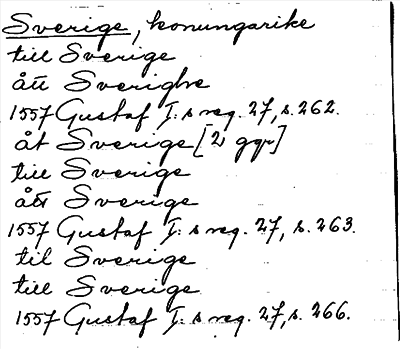 Sverige, konungarike
till Sverige
ått Sverighe
1557 Gustaf I:s reg. 27, s. 262.
åt Sverige [2 ggr]
till Sverige
ått Sverige
1557 Gustaf I:s reg. 27, s. 263.
til Sverige
till Sverige
1557 Gustaf I:s reg. 27, s. 266.